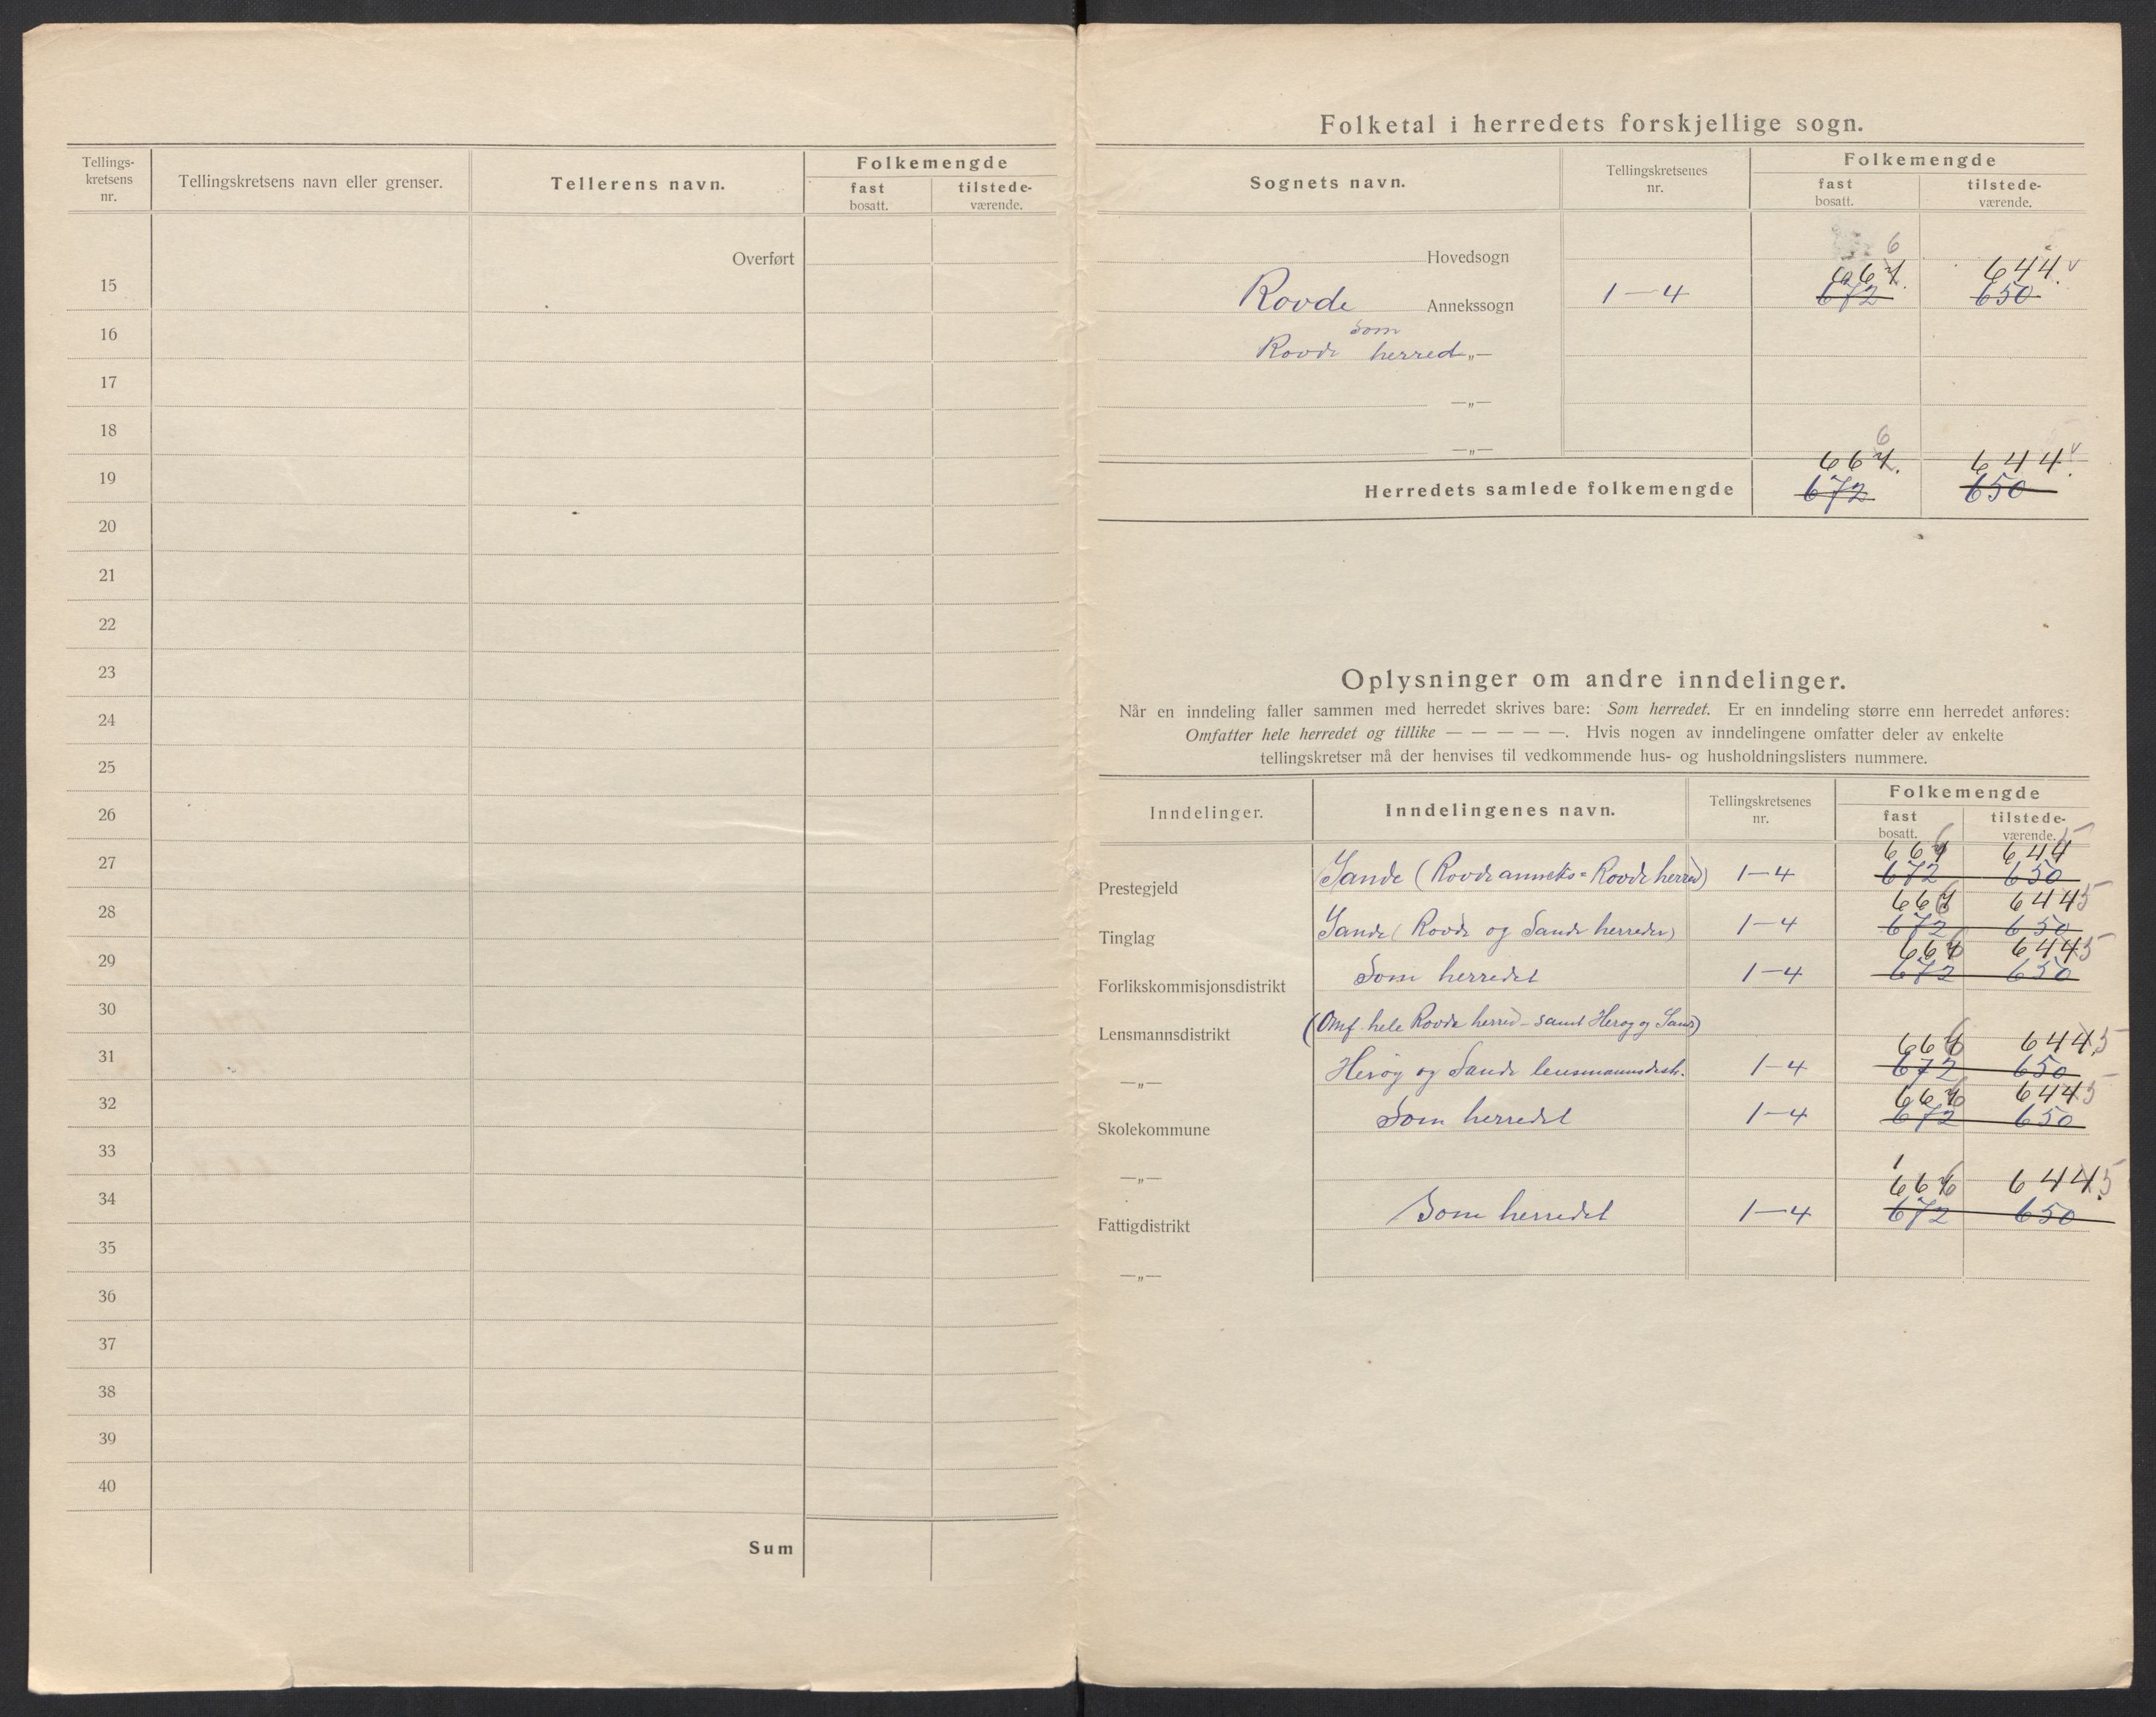 Tellings-
kretsens
nr.
Tellingskretsens navn eller grenser.
Tellerens navn.
Folkemengde
fast
bosatt.
tilstede-
værende.
Overført
15
16
17
18
19
20
21
22
23
24
25
26
27
28
29
30
31
32
33
34
35
36
37
38
39
40
Sum
Folketal i herredets forskjellige sogn.
Sognets navn.
Tellingskretsenes
nr.
Folkemengde
fast
bosatt.
tilstede-
værende.
Hovedsogn
6
667. 644 v
Rovde Annekssogn 1-4 672 650
som
Rovde herred —„—
—„—
—„—
6
667. 644 v
Herredets samlede folkemengde 672 650
Oplysninger om andre inndelinger.
Når en inndeling faller sammen med herredet skrives bare: Som herredet. Er en inndeling større enn herredet anføres:
Omfatter hele herredet og tillike — — — — —. Hvis nogen av inndelingene omfatter deler av enkelte
tellingskretser må der henvises til vedkommende hus- og husholdningslisters nummere.
Inndelinger.
Inndelingenes navn.
Tellingskretsenes
nr.
Folkemengde
fast
bosatt.
tilstede-
værende.
667 6 644 5
Prestegjeld Sande (Rovde anneks = Rovde herred) 1-4 672 650
667 6 644 5
Tinglag Sande (Rovde og Sande herreder) 1-4 672 650
667 6 644 5
Forlikskommisjonsdistrikt Som herredet 1-4 672 650
Lensmannsdistrikt (Omf. hele Rovde herred - samt Herøy og Sande)
667 6 644 5
—„— Herøy og Sande lensmannsdistr. 1-4 672 650
667 6 644 5
Skolekommune Som herredet 1-4 672 650
—„—
667 6 644 5
Fattigdistrikt Som herredet 1-4 672 650
—„—